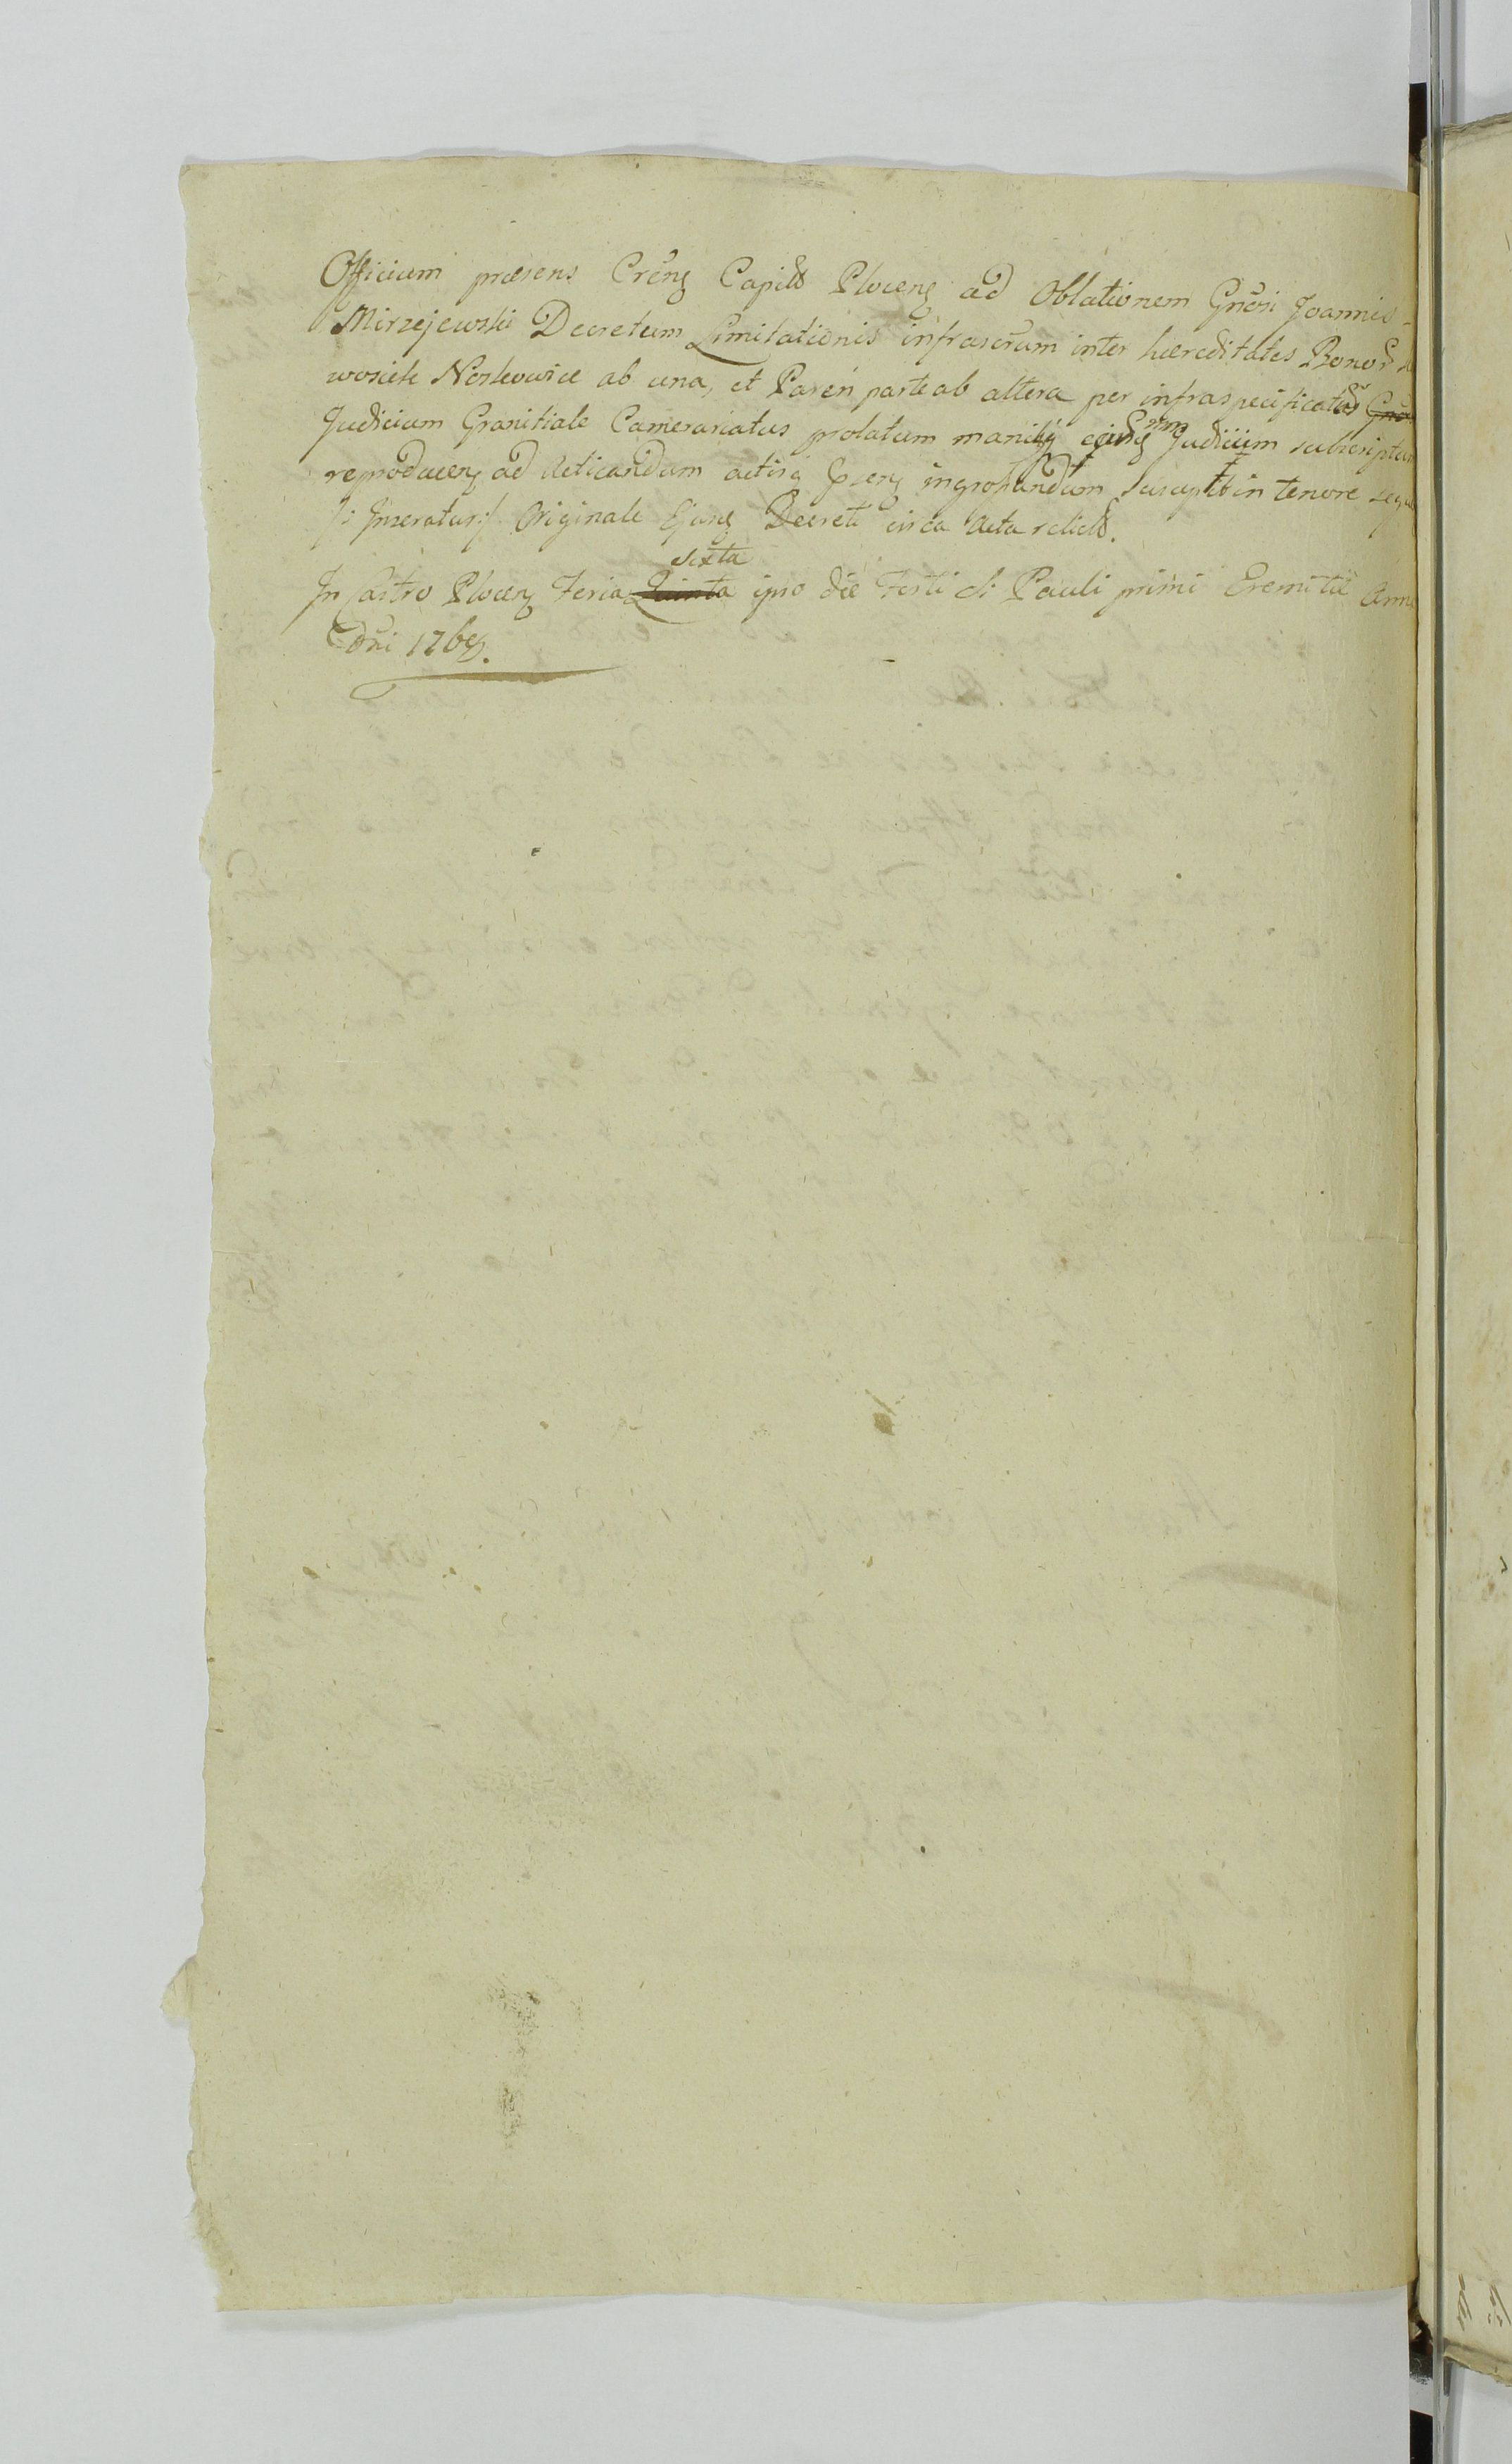 Officium præsens Crens Capitle Plocens ad Oblationem Gnosi Joannis
Mirzejewski Decretum Limitationis infrascrum inter hæreditates Bonor
wosiele Noskowice ab una, et Paren parte ab altera per infraspecificatum
Judicium Granitiale Camerariatus prolatum manibq ejusdq Judicium subscriptum
reproducens ad Acticandum actisq psens ingrossandum suscepit in tenore seq
/: Inseratur :/ Originale Ejusq Decreti circa Acta relicto.
In Castro Plocens Feria Quinta sexta ipso die Festi S: Pauli primi Eremitæ Anno
Dni 176